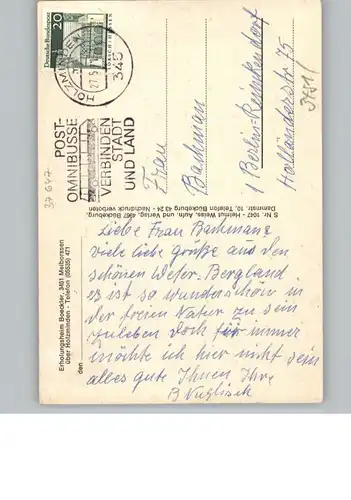 Deutsche Bundespost
20
HOLZMINDEN
345
POST-
OMNIBUSSE
VERBINDEN
STADT
UND LAND
37647
3751/
Frau
Bachman
1 Berlin-Reinickendorf
Holländerstr. 75
S Nr. 1047 - Helmut Weiss, Aufn. und Verlag, 4967 Bückeburg,
Dammstr. 10, Telefon Bückeburg 43 24 - Nachdruck verboten
Erholungsheim Boecker, 3451 Meiborssen
über Holzminden - Telefon (05535) 471
den
Liebe Frau Bachman
viele liebe Grüße aus den
schönen Weser. Bergland
es ist so wunderschön in
der freien Natur zu sein
zuleben doch für immer
möchte ich hier nicht sein
alles gute Ihnen Ihre
B